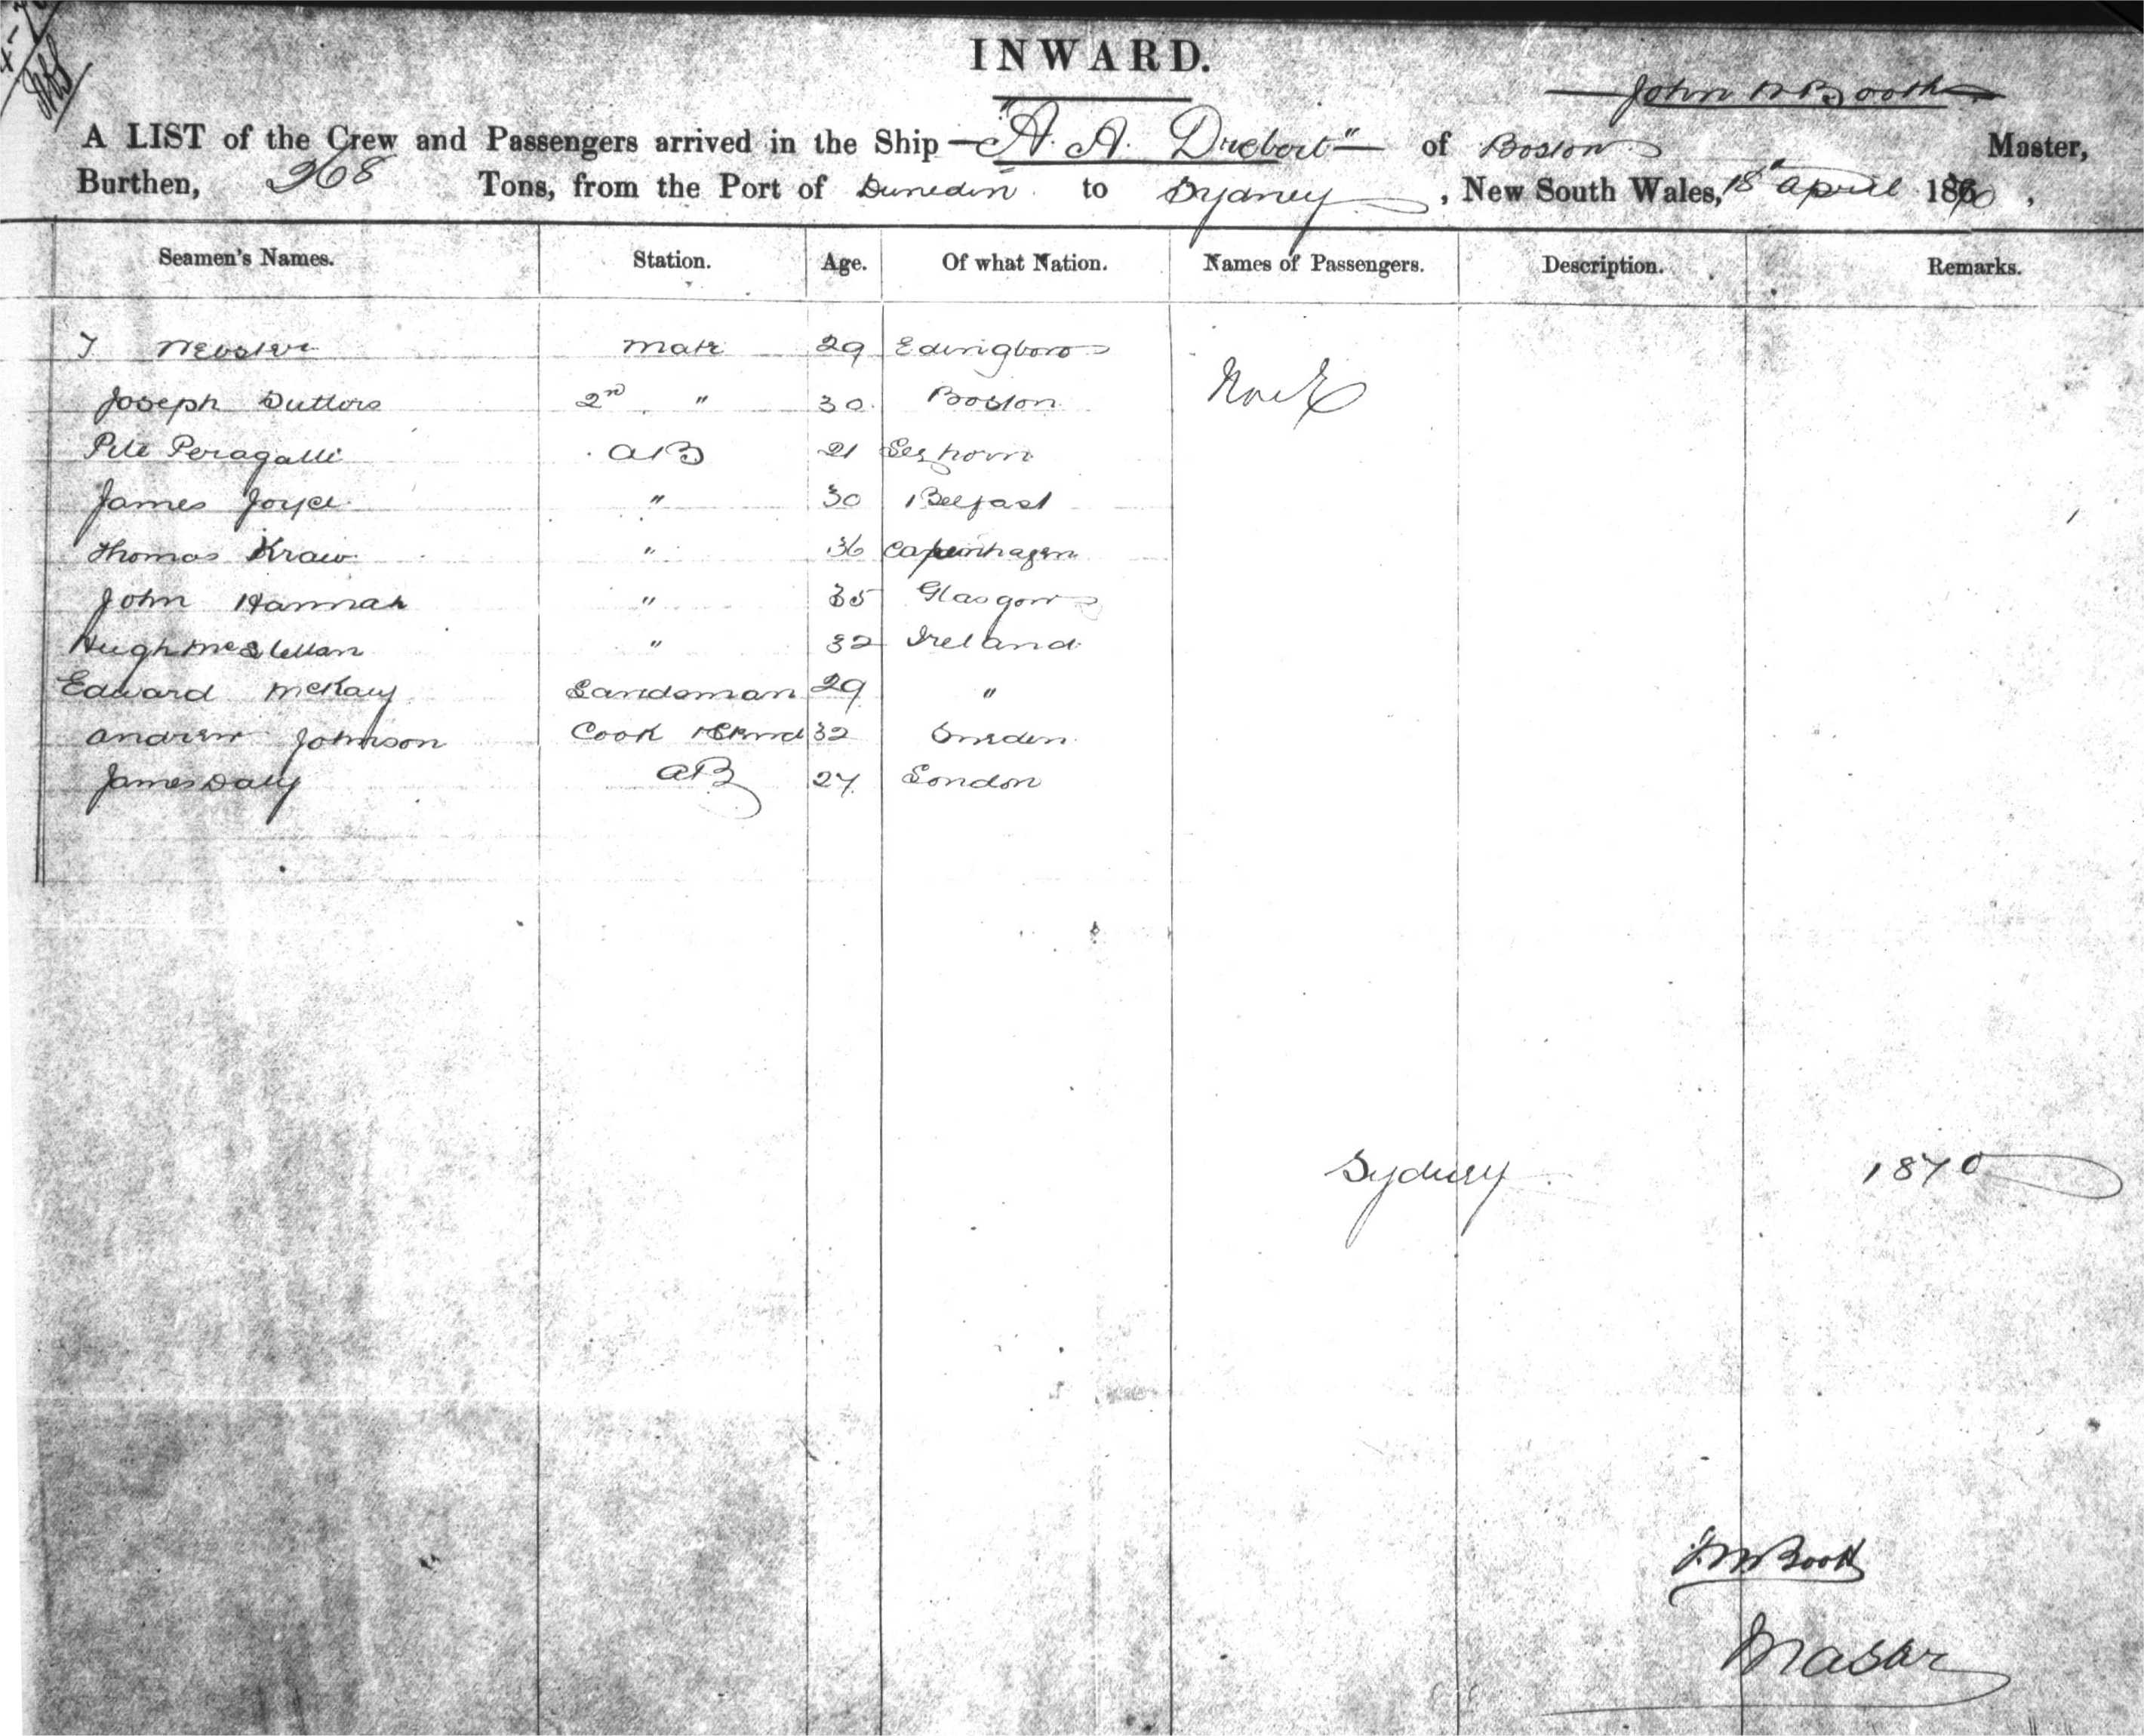 INWARD.
John W Booth
A LIST of the Crew and Passengers arrived in the Ship "A. A. Drebert" of Boston Master,
Burthen, 268 Tons, from the Port of Dunedin to Sydney, New South Wales, 18th April 1870,
Seamen's Names. Station. Age. Of what Nation. Names of Passengers. Description. Remarks.
Webster Mate 29 Edingboro
Joseph Suttors 2nd " 30 Boston None
Pete Peragalli AB 21
James Joyce " 30 Belfast
Thomas Kraw " 36 Copenhagen
John Hannah " 35 Glasgow
Hugh McClellan " 32 Ireland
Edward McKay Landsman 29 "
Andrew Johnson Cook 32 Sweden
James Daly AB 27 London
Sydney 1870
J W Booth
Master